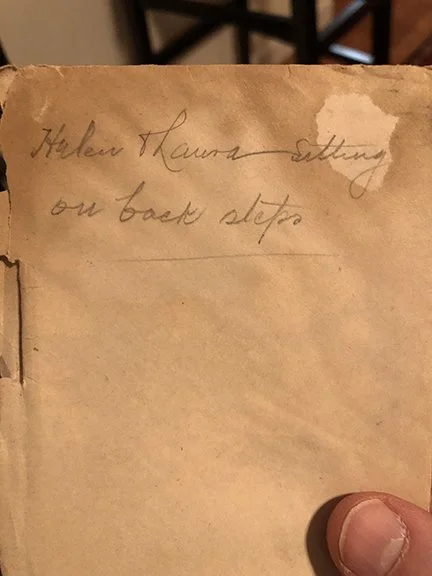 Helen & Laura sitting
on back steps